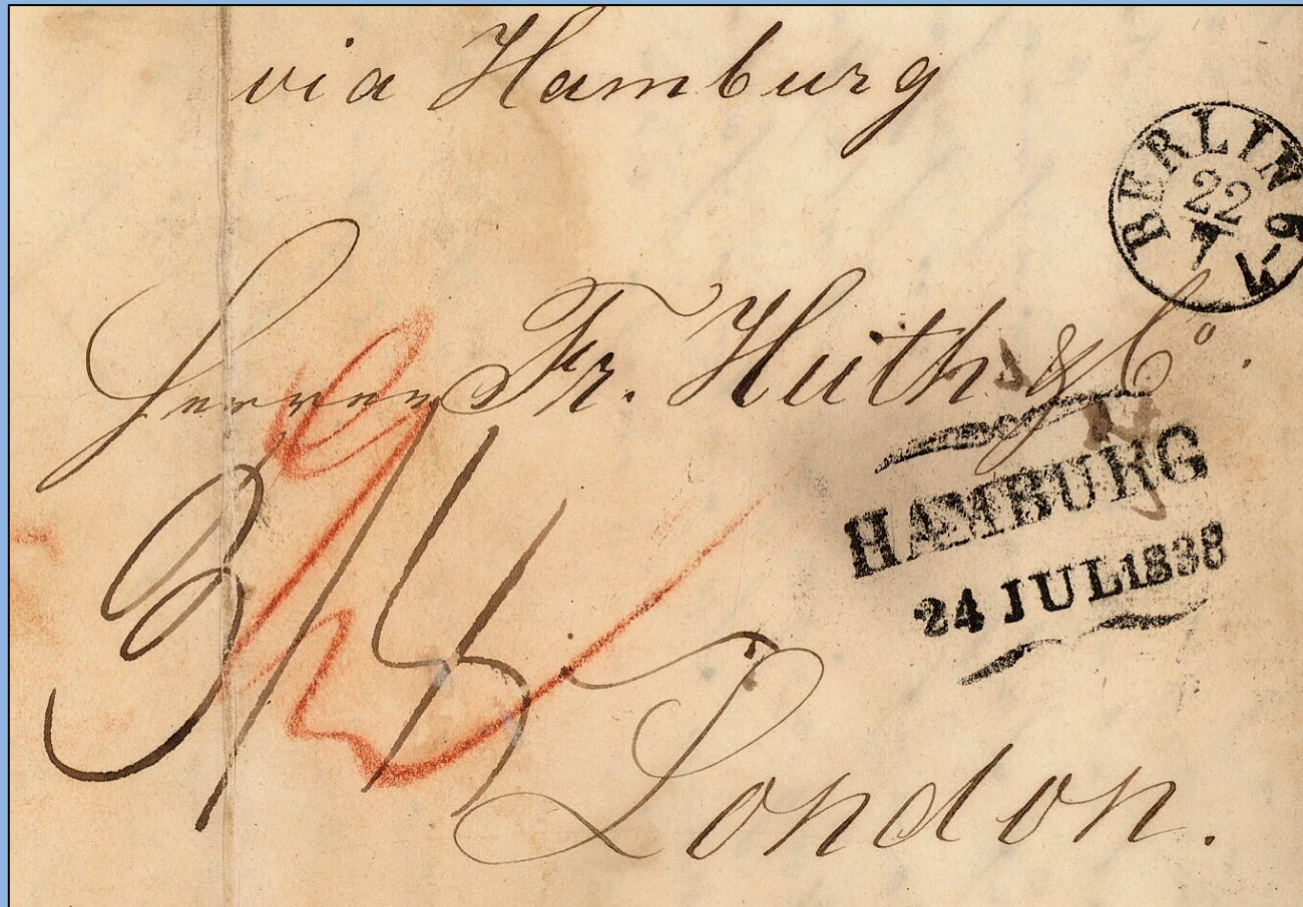 via Hamburg
BERLIN
22
7
6-7
Herren Fr. Huth & Co.
HAMBURG
24 JUL 1838
3/4
London.